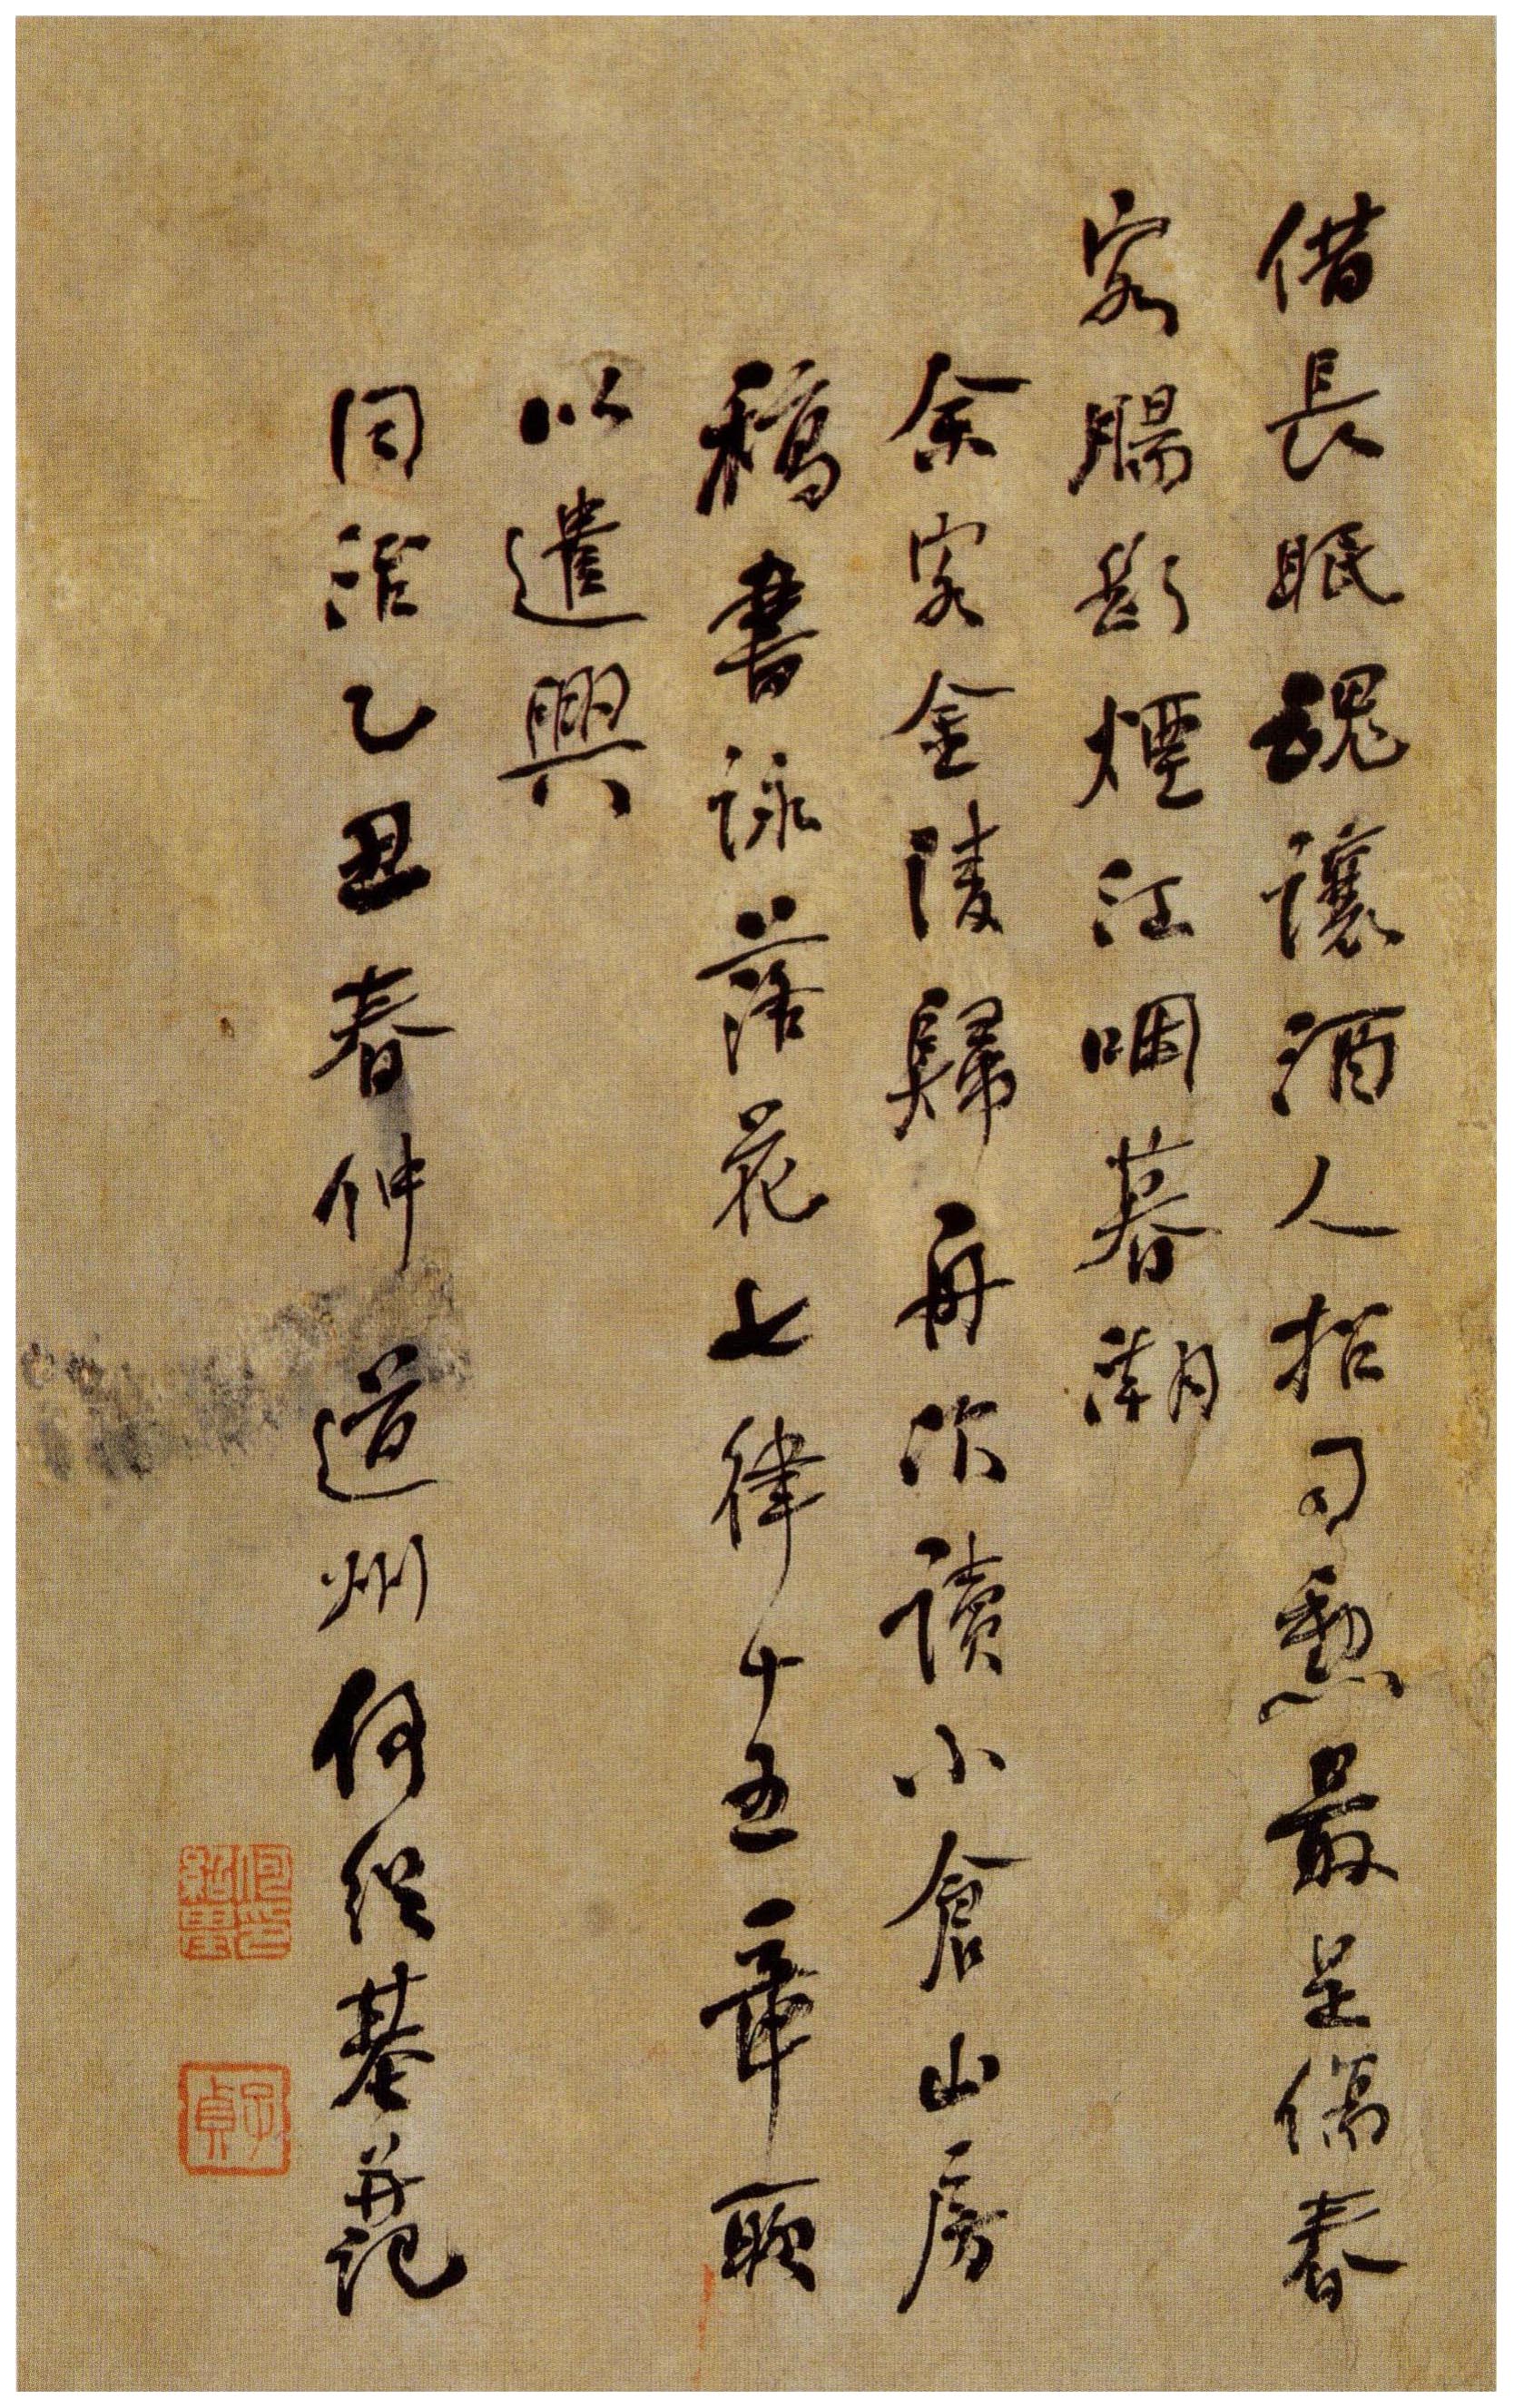 借長眠魂讓酒人招司勳最是傷春
客腸斷煙江咽暮潮
余客金陵歸舟次讀小倉山房
稿書詠落花七律十五章聊
以遣興
同治乙丑春仲道州何紹基并記
何紹基印
子貞